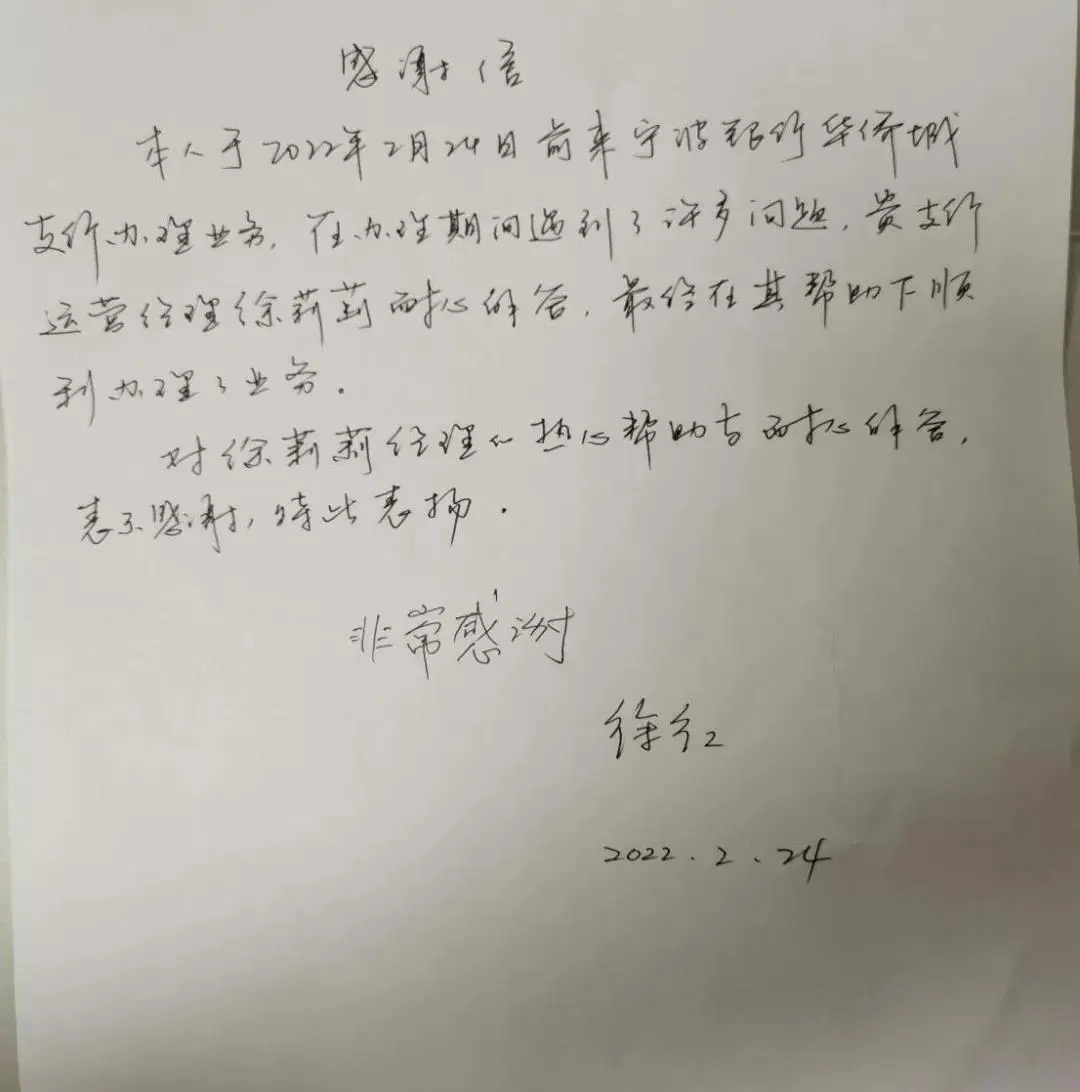 感谢信
本人于2022年2月24日前来宁波银行华侨城
支行办理业务,在办理期间遇到了许多问题,贵支行
运营经理徐莉莉耐心解答,最终在其帮助下顺
利办理了业务.
对徐莉莉经理的热心帮助与耐心解答,
表示感谢,特此表扬.
非常感谢
徐红
2022.2.24